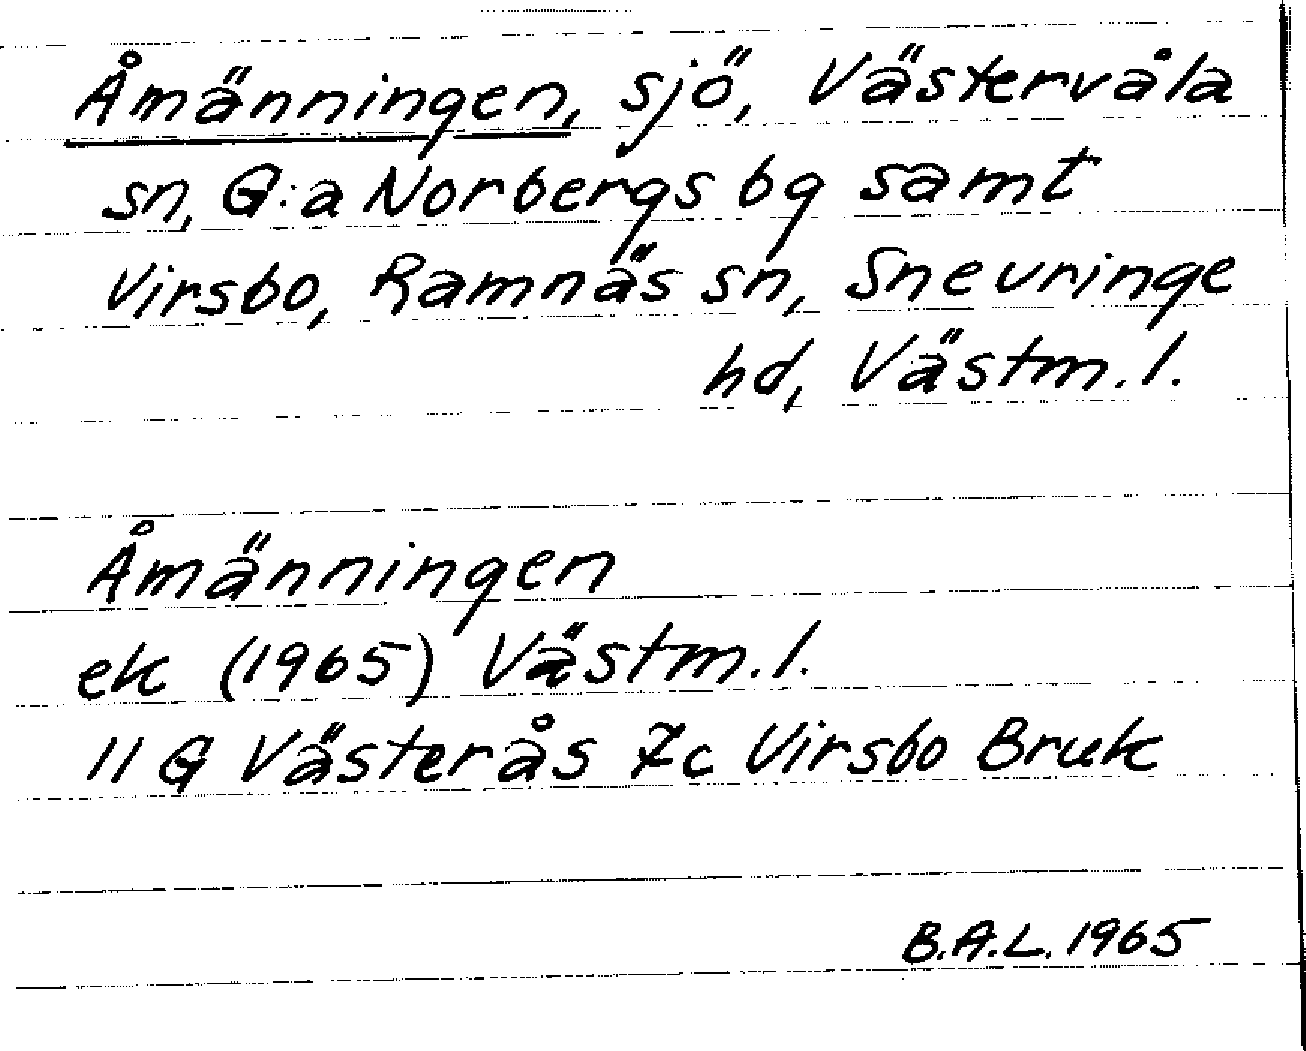 Åmänningen, sjö, Västervåla
sn, G:a Norbergs bg samt
Virsbo, Ramnäs sn, Snevringe
hd, Västm. l.
Åmänningen
ek (1965) Västm. l.
11 G Västerås 7c Virsbo Bruk
B.A.L. 1965